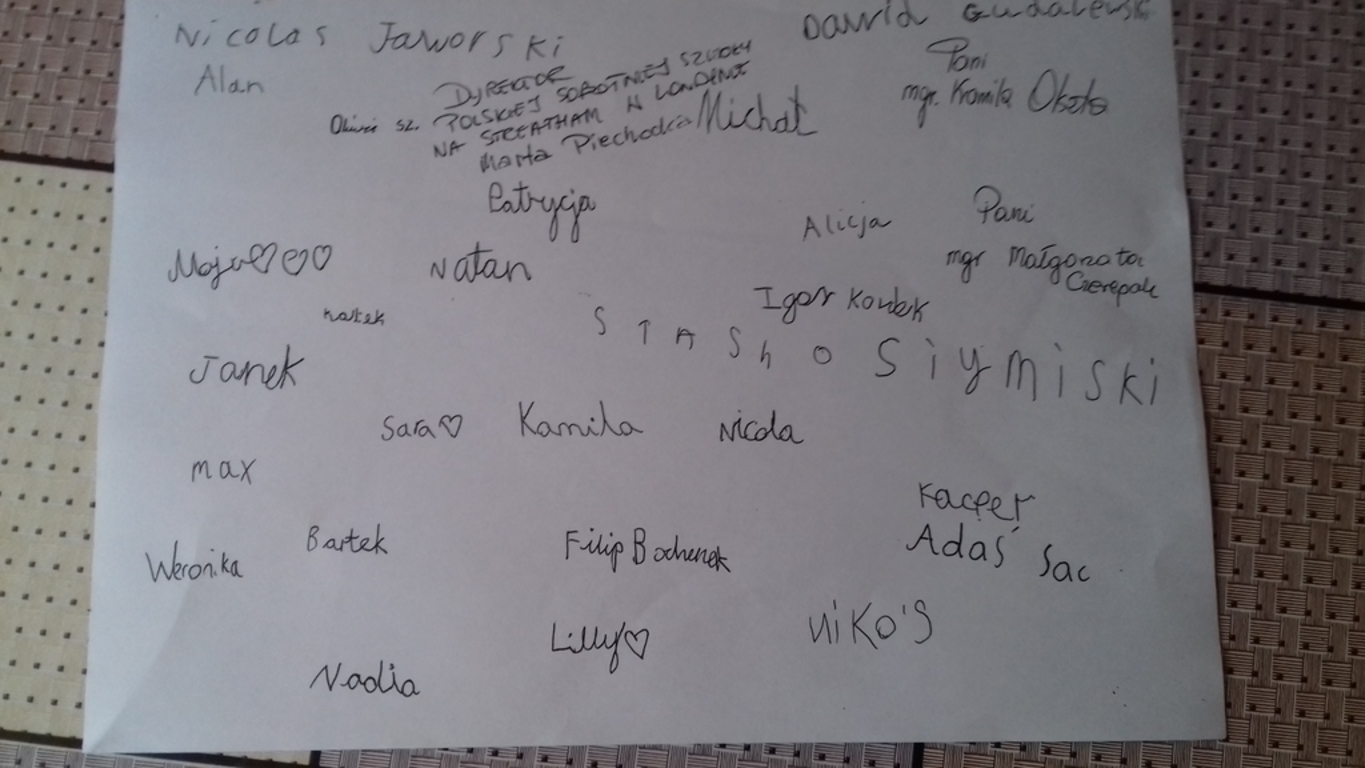 Nicolas Jaworski
Dawid
Alan
DYREKTOR
POLSKIEJ SOBOTNIEJ SZKOŁY
NA STREATHAM W LONDYNIE
Marta Piechocka
Michał
Pani
mgr. Kamila
sz.
Patrycja
Alicja
Pani
mgr Małgorzata
Czerepak
Maja♡♡♡
Natan
Igor
STASho Siymiski
Janek
Sara♡
Kamila
Nicola
max
Kacper
Adaś Sac
Bartek
Filip Bochenek
Weronika
Lilly♡
NiKo's
Nadia